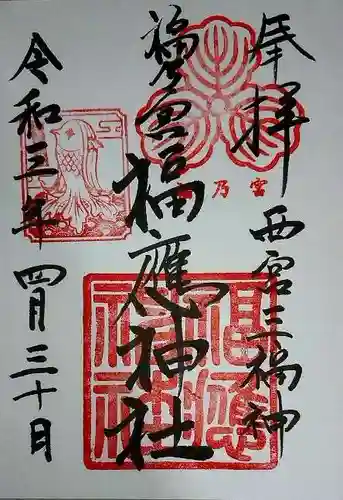 奉拝
西宮三福神
乃宮
福應神社
令和三年四月三十日
福應神社